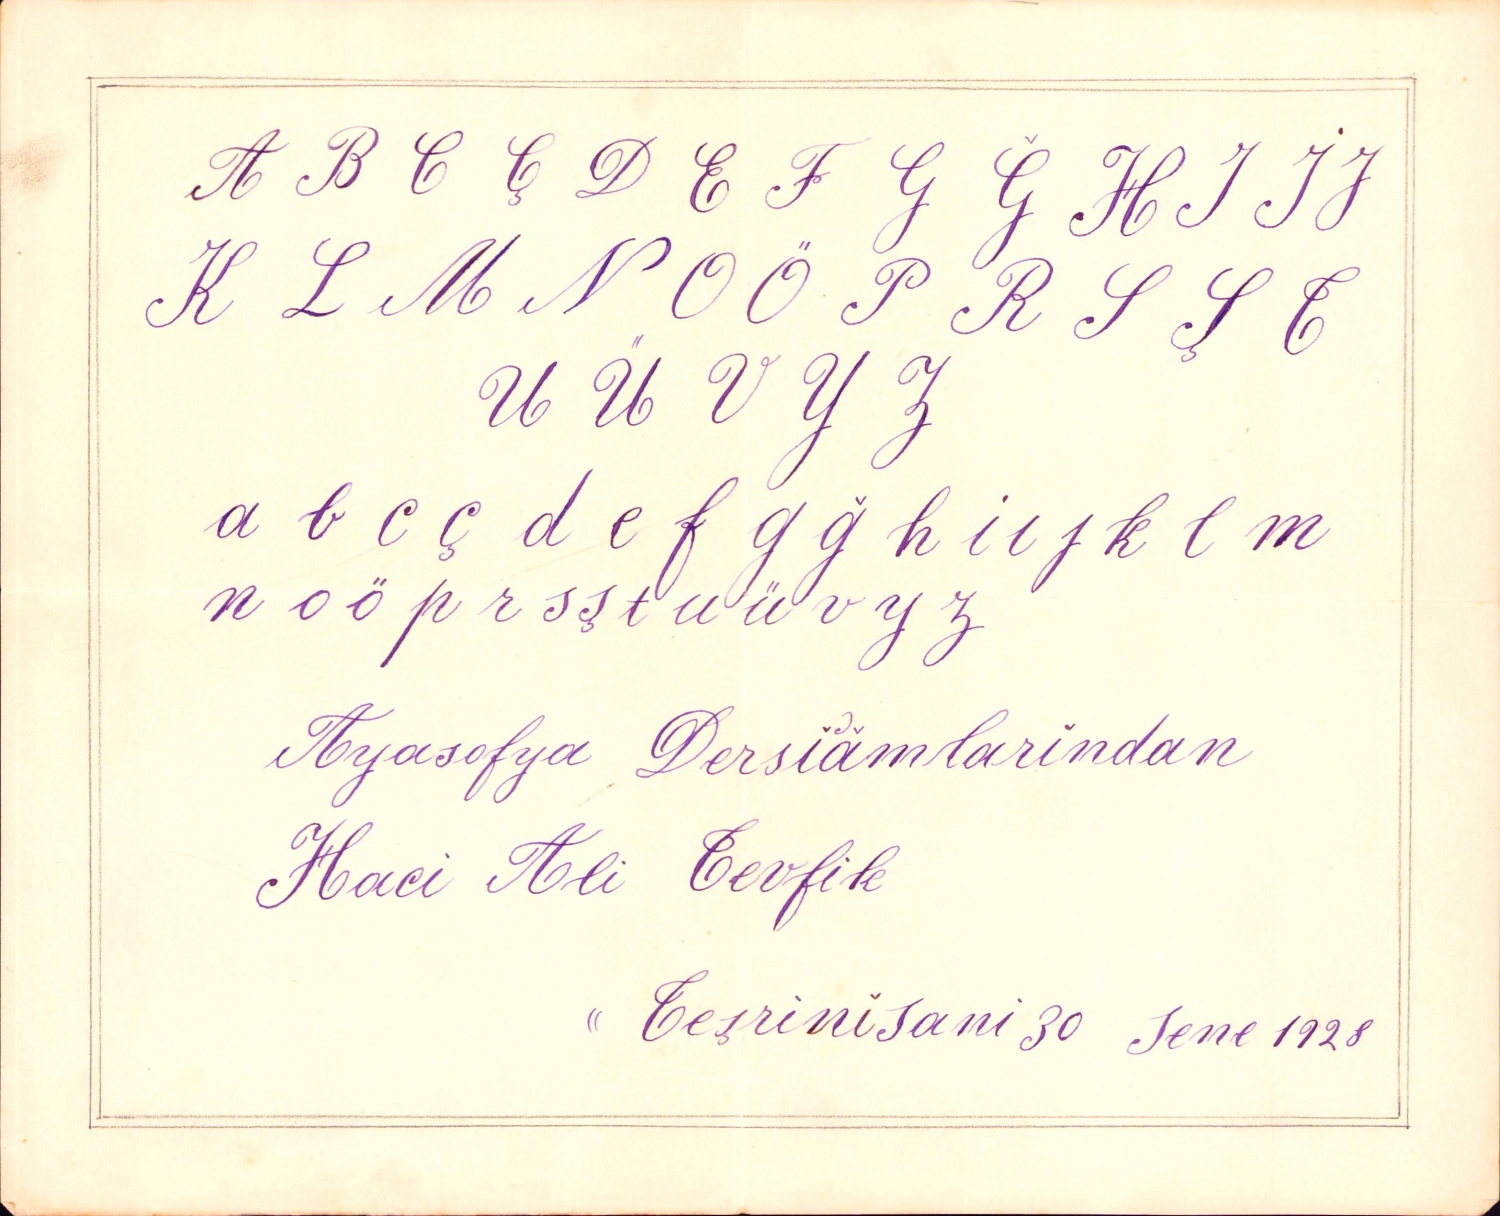 A B C Ç D E F G Ğ H I İ J
K L M N O Ö P R S Ş T
U Ü V Y Z
a b c ç d e f g ğ h i ı j k l m
n o ö p r s ş t u ü v y z
Ayasofya Dersiâmlarindan
Haci Ali Tevfik
" Teşrinisani 30 Sene 1928